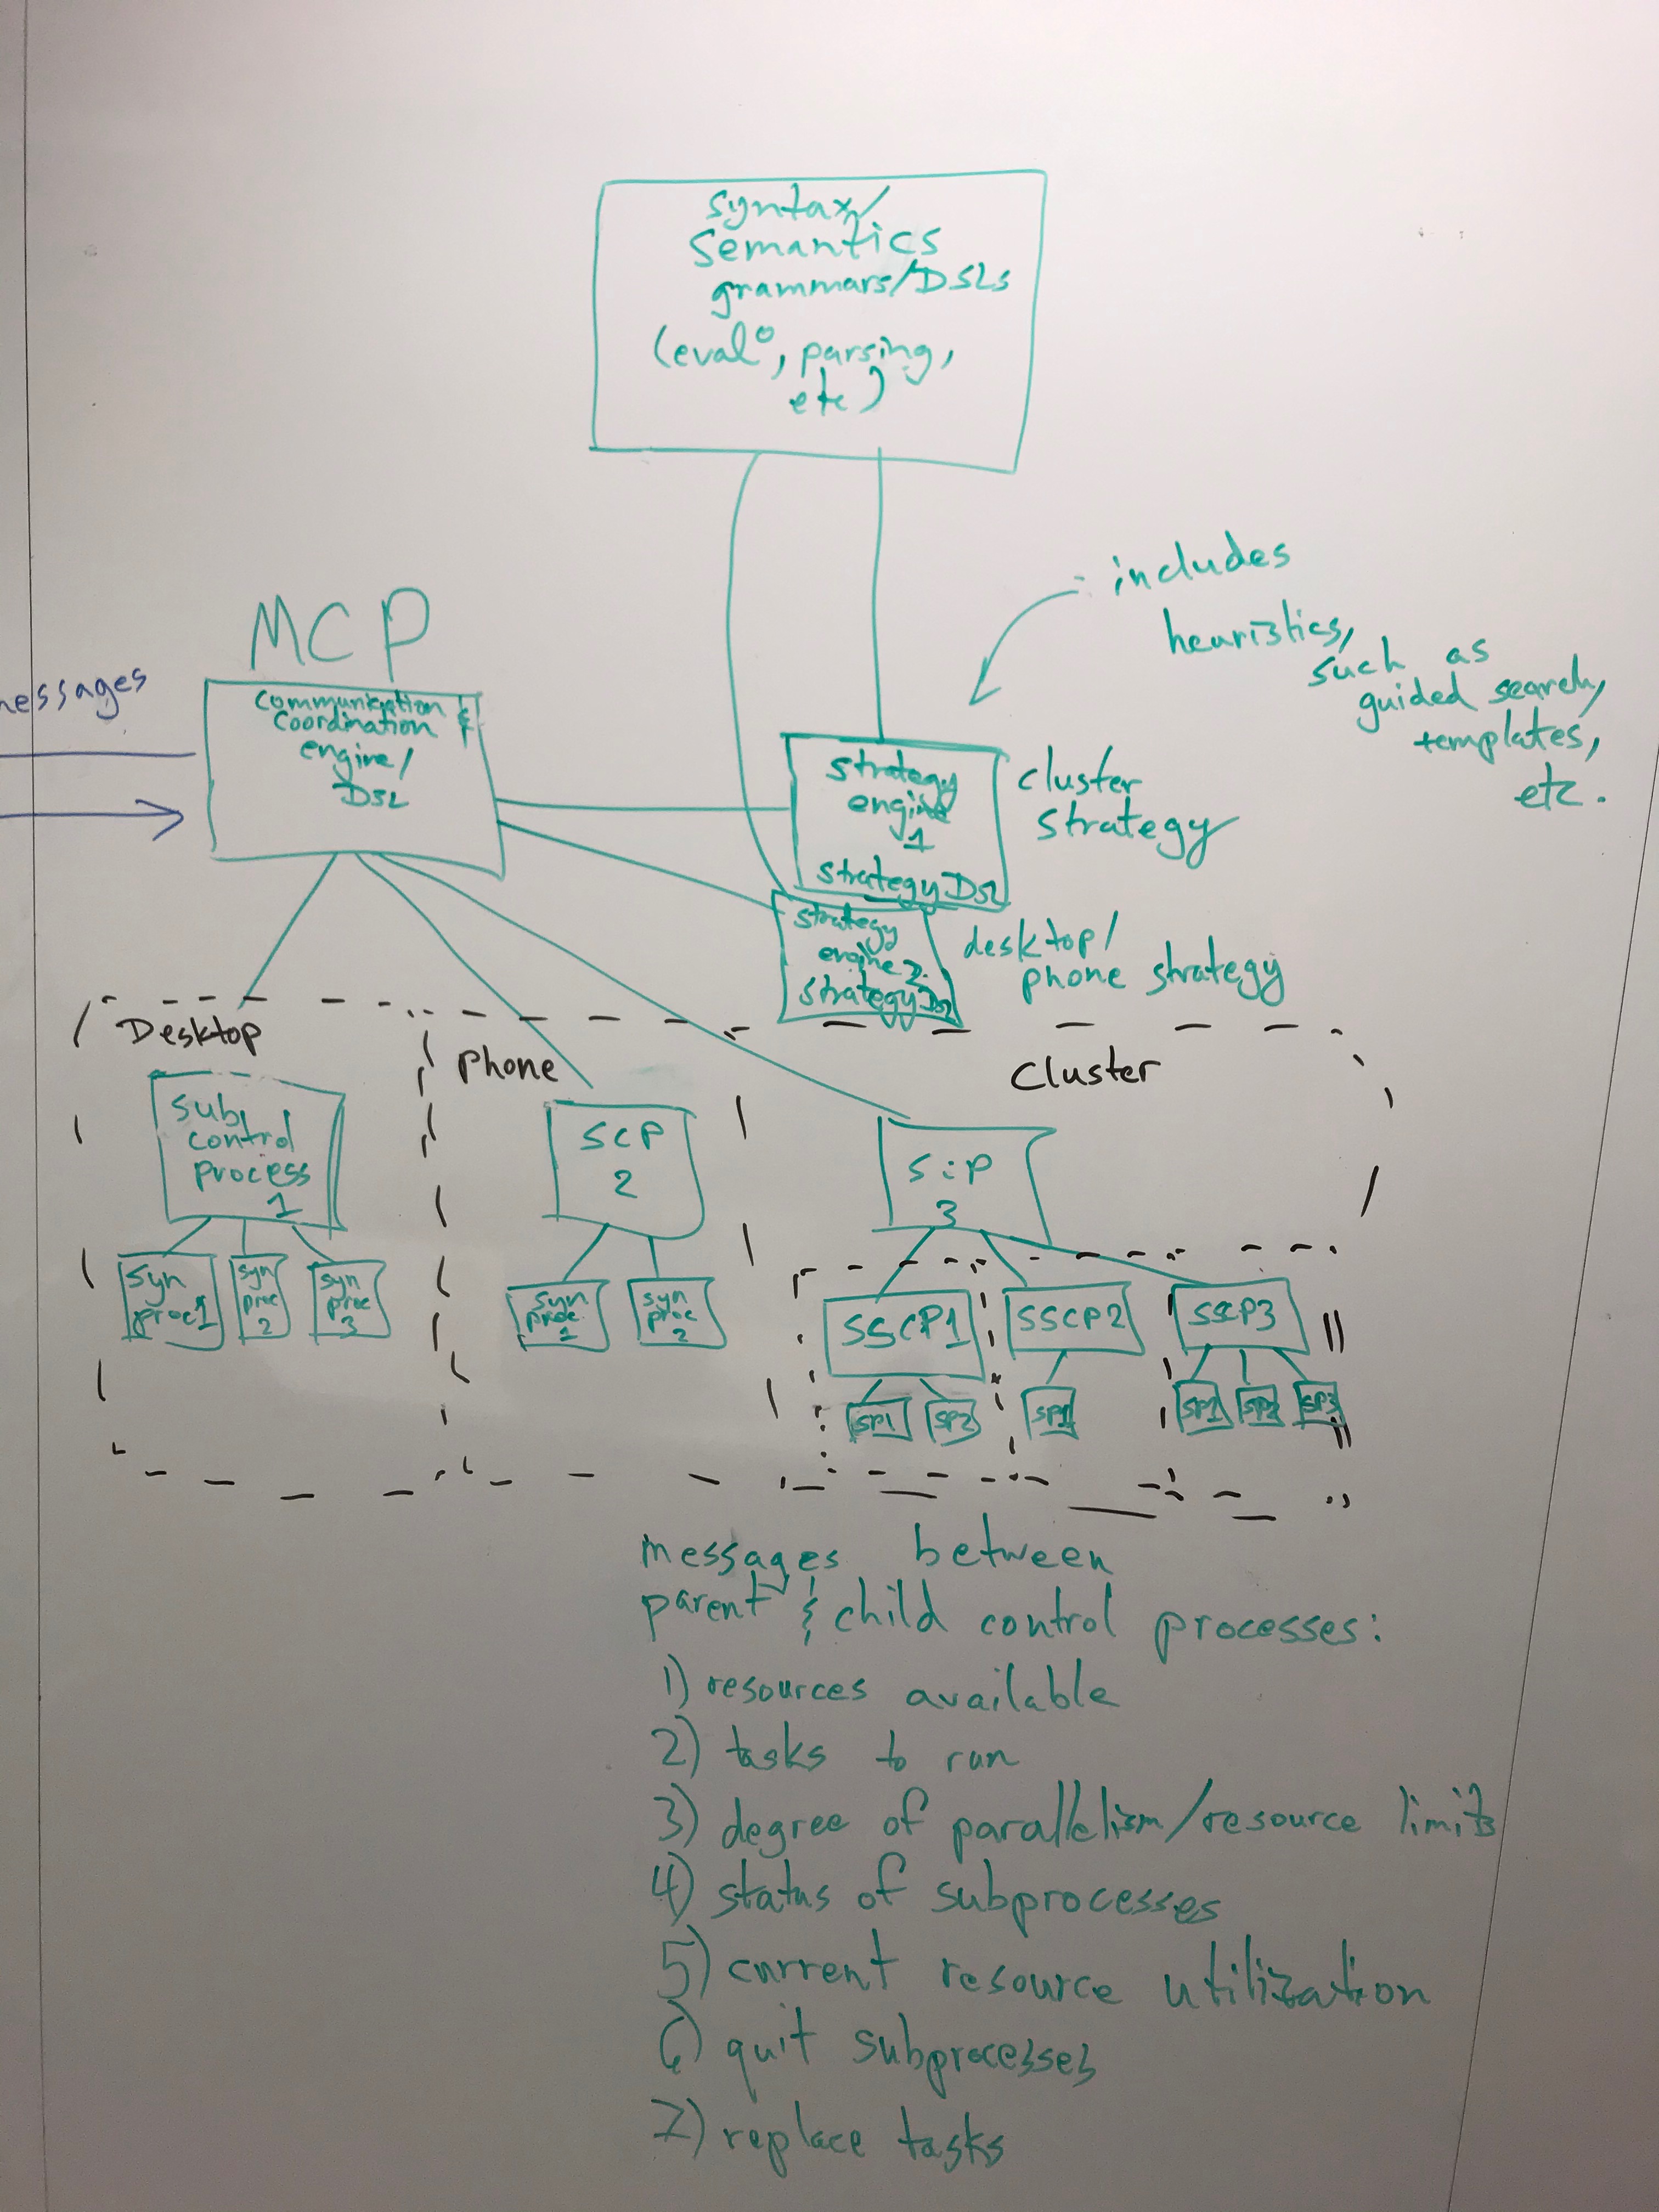 syntax/
semantics
grammars/DSLs
(eval°, parsing,
etc)
includes
heuristics,
such as
guided search,
templates,
etc.
MCP
messages
communication &
coordination
engine/
DSL
strategy
engine
1
strategy DSL
cluster
strategy
strategy
engine 2
strategy DSL
desktop/
phone strategy
Desktop
phone
Cluster
sub
control
process
1
SCP
2
SCP
3
syn
proc 1
syn
proc
2
syn
proc
3
syn
proc
1
syn
proc
2
SSCP1
SSCP2
SSCP3
SP1
SP2
SP1
SP1
SP2
SP3
messages between
parent & child control processes:
1) resources available
2) tasks to run
3) degree of parallelism/resource limits
4) status of subprocesses
5) current resource utilization
6) quit subprocesses
7) replace tasks